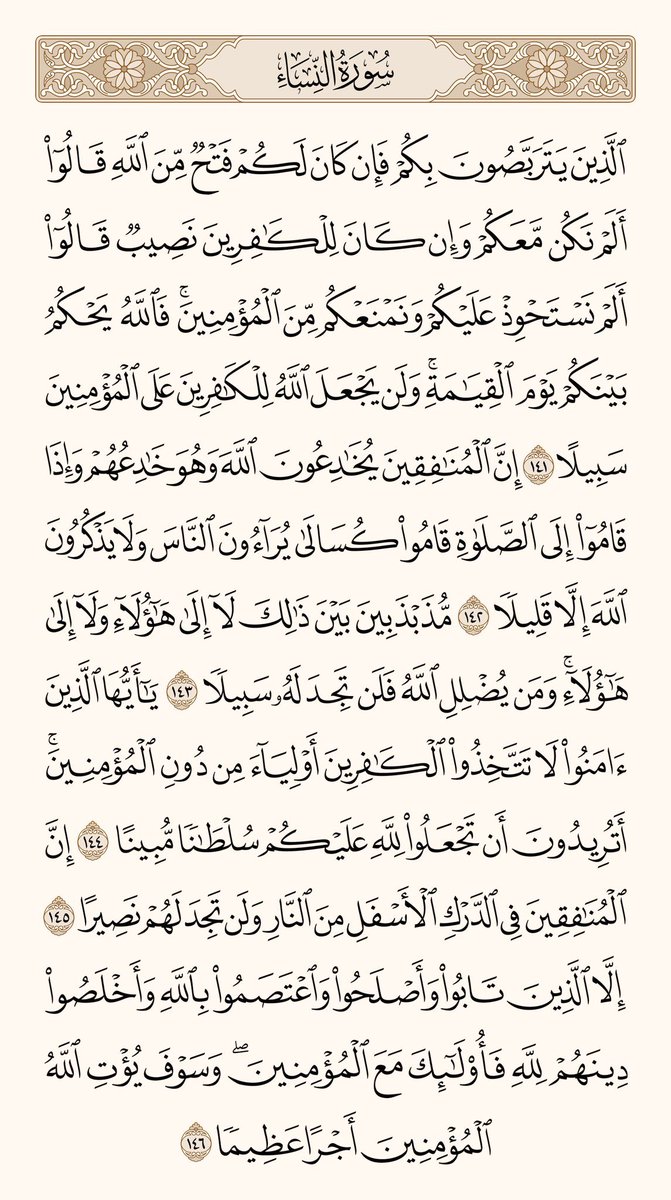 سُورَةُ النِّسَاءِ
ٱلَّذِينَ يَتَرَبَّصُونَ بِكُمْ فَإِن كَانَ لَكُمْ فَتْحٌ مِّنَ ٱللَّهِ قَالُوٓا۟
أَلَمْ نَكُن مَّعَكُمْ وَإِن كَانَ لِلْكَـٰفِرِينَ نَصِيبٌ قَالُوٓا۟
أَلَمْ نَسْتَحْوِذْ عَلَيْكُمْ وَنَمْنَعْكُم مِّنَ ٱلْمُؤْمِنِينَ ۚ فَٱللَّهُ يَحْكُمُ
بَيْنَكُمْ يَوْمَ ٱلْقِيَـٰمَةِ ۚ وَلَن يَجْعَلَ ٱللَّهُ لِلْكَـٰفِرِينَ عَلَى ٱلْمُؤْمِنِينَ
سَبِيلًا ١٤١ إِنَّ ٱلْمُنَـٰفِقِينَ يُخَـٰدِعُونَ ٱللَّهَ وَهُوَ خَـٰدِعُهُمْ وَإِذَا
قَامُوٓا۟ إِلَى ٱلصَّلَوٰةِ قَامُوا۟ كُسَالَىٰ يُرَآءُونَ ٱلنَّاسَ وَلَا يَذْكُرُونَ
ٱللَّهَ إِلَّا قَلِيلًا ١٤٢ مُّذَبْذَبِينَ بَيْنَ ذَٰلِكَ لَآ إِلَىٰ هَـٰٓؤُلَآءِ وَلَآ إِلَىٰ
هَـٰٓؤُلَآءِ ۚ وَمَن يُضْلِلِ ٱللَّهُ فَلَن تَجِدَ لَهُۥ سَبِيلًا ١٤٣ يَـٰٓأَيُّهَا ٱلَّذِينَ
ءَامَنُوا۟ لَا تَتَّخِذُوا۟ ٱلْكَـٰفِرِينَ أَوْلِيَآءَ مِن دُونِ ٱلْمُؤْمِنِينَ ۚ
أَتُرِيدُونَ أَن تَجْعَلُوا۟ لِلَّهِ عَلَيْكُمْ سُلْطَـٰنًا مُّبِينًا ١٤٤ إِنَّ
ٱلْمُنَـٰفِقِينَ فِى ٱلدَّرْكِ ٱلْأَسْفَلِ مِنَ ٱلنَّارِ وَلَن تَجِدَ لَهُمْ نَصِيرًا ١٤٥
إِلَّا ٱلَّذِينَ تَابُوا۟ وَأَصْلَحُوا۟ وَٱعْتَصَمُوا۟ بِٱللَّهِ وَأَخْلَصُوا۟
دِينَهُمْ لِلَّهِ فَأُو۟لَـٰٓئِكَ مَعَ ٱلْمُؤْمِنِينَ ۖ وَسَوْفَ يُؤْتِ ٱللَّهُ
ٱلْمُؤْمِنِينَ أَجْرًا عَظِيمًا ١٤٦